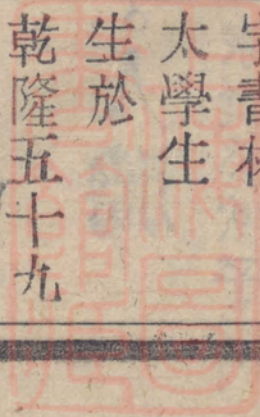 字書林
太學生
生於
乾隆五十九